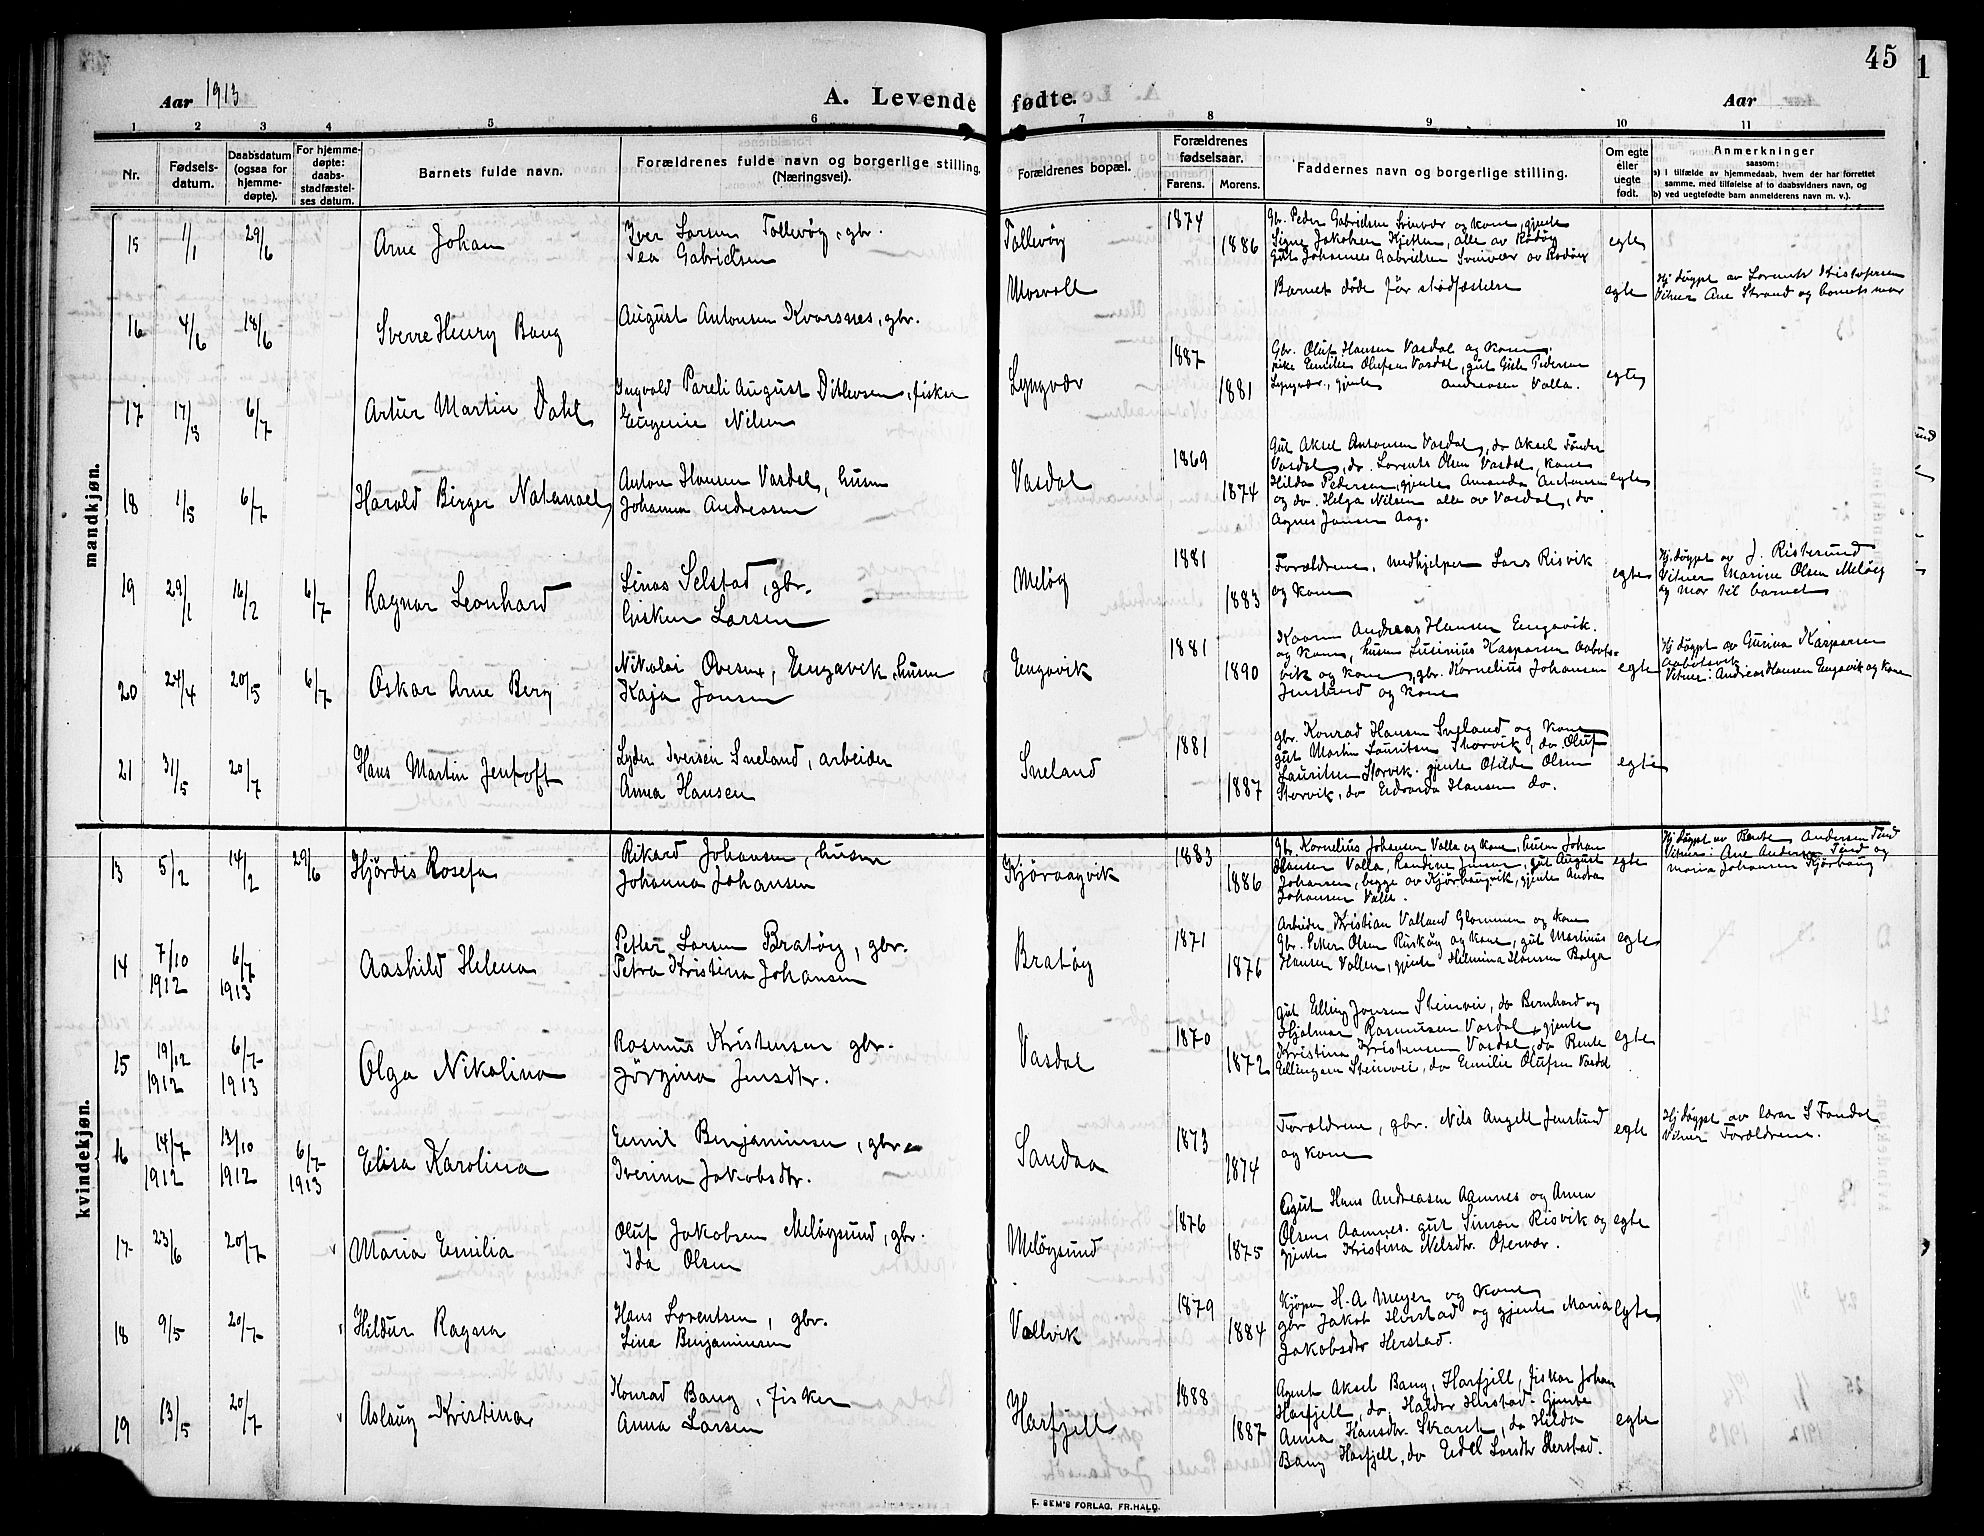 45
Aar 1913
A. Levende fødte.
Aar
1 2 3 4 5 6 7 8 9 10 11
Nr.
Fødsels-
datum.
Daabsdatum
(ogsaa for
hjemme-
døpte).
For hjemme-
døpte:
daabs-
stadfæstel-
ses datum.
Barnets fulde navn.
Forældrenes fulde navn og borgerlige stilling
(Næringsvei).
Forældrenes bopæl.
Forældrenes
fødselsaar.
Farens. Morens.
Faddernes navn og borgerlige stilling.
Om egte
eller
uegte
født.
Anmerkninger
saasom:
a) I tilfælde av hjemmedaab, hvem der har forrettet
samme, med tilføielse af to daabsvidners navn, og
b) ved uegtefødte barn anmelderens navn m. v.).
mandkjøn.
15 1/1 29/6 Arne Johan
Iver Larsen Tollevøg, gbr.
Tea Gabrielsen
Tollevøg 1874 1886
Gbr. Peder Gabrielsen Svinvær og kone, gjente
Signe Jakobsen Kjetten, alle av Rødøy
Gut Johannes Gabrielsen Svinvær av Rødøy
egte
16 4/6 18/6 Sverre Henry Bang
August Antonsen Kvarsnes, gbr.
Mosvoll
Barnet døde før stadfæstelse
egte
Hj. døypt av Lorents Kristofersen
Vitner Ane Strand og barnets mor
17 17/3 6/7 Artur Martin Dahl
Ingvald Pareli August Ditlevsen, fisker
Eugenie Nilsen
Lyngvær 1887 1881
Gbr. Oluf Hansen Vasdal og kone,
pike Emilie Olufsen Vasdal, gut Edel Pedersen
Lyngvær, gjente Andreasen Valla.
egte
18 1/3 6/7 Harald Birger Natanael
Anton Hansen Vasdal, husm
Johanna Andreasen
Vasdal 1869 1874
Gut Aksel Antonsen Vasdal, do Aksel Tønder
Vasdal, do. Lorents Olsen Vasdal, kone
Hilda Pedersen, gjente Amanda Antonsen
og do. Helga Nilsen alle av Vasdal, do
Agnes Jensen Aag.
egte
19 29/1 16/2 6/7 Ragnar Leonhard
Linas Selstad, gbr.
Gisken Larsen
Meløy 1881 1883
Forældrene, medhjelper Lars Risvik
og kone
egte
Hj. døypt av J. Ristesund
Vitner Marine Olsen Meløy
og mor til barnet
20 24/4 20/5 6/7 Oskar Arne Berg
Nikolai Ovesen, Engavik, husm
Kaja Jensen
Engavik 1881 1890
Kaarm Andreas Hansen Engavik
og kone, husm Lusinius Kaspersen Aabots-
vik og kone, gbr. Kornelius Johansen
Jenslund og kone
egte
Hj døypt av Gurina Kaspersen
Aabotsvik
Vitner: Andreas Hansen Engavik og kone
21 31/5 20/7 Hans Martin Jentoft
Lyder Iversen Sneland, arbeider
Anna Hansen
Sneland 1881 1887
gbr. Konrad Hansen Sneland og kone
gut Martin Lauritsen Storvik, do Oluf
Lauritsen Storvik. gjente Otilde Olsen
Storvik, do Edvarda Hansen do.
egte
kvindekjøn.
13 5/2 14/2 29/6 Hjørdis Rosefa
Rikard Johansen, husm
Johanna Johansen
Kjøraagvik 1883 1886
Gbr. Kornelius Johansen Valla og kone, husm Johan
Hansen Valla, Randine Jensen, gut August
Johansen, begge av Kjørbaugvik, gjente Andrea
Johansen Valla.
egte
Hj døypt av Bente Andersen Tind
Vitner: Ane Andersen Tind og
Maria Johansen Kjørbaug
14 7/10 1912 6/7 1913 Aashild Helena
Petter Larsen Bratøy, gbr.
Petra Kristina Johansen
Bratøy 1871 1876
Arbeider Kristian Valland Glommen og kone
Gbr. Peter Olsen Риskøy og kone, gut Martinus
Hansen Vallen, gjente Helmina Hansen Bolga
egte
15 19/12 1912 6/7 1913 Olga Nikolina
Rasmus Kristensen gbr.
Jørgina Jensdtr.
Vasdal 1870 1872
Gut Elling Jensen Steinvei, do Bernhard og
Hjalmar Rasmussen Vasdal, gjente
Kristina Kristensen Vasdal, do Bente
Ellingsen Steinvei, do Emilie Olufsen Vasdal
egte
16 14/7 1912 13/10 1912 6/7 1913 Elisa Karolina
Emil Benjaminsen, gbr.
Iverina Jakobsdtr.
Sandaa 1873 1874
Forældrene, gbr. Nils Angell Jenslund
og kone
egte
Hj døypt av lærer S Fondal
Vitner Forældrene.
17 23/6 20/7 Maria Emilia
Oluf Jakobsen Meløysund, gbr.
Ida Olsen
Meløysund 1876 1875
Gut Hans Andreasen Aamnes og Anna
Olsen Aamnes. gut Simon Risvik og
gjente Kristina Nelsdtr. Otervær.
egte
18 9/5 20/7 Hildur Ragna
Hans Lorentsen, gbr.
Lina Benjaminsen
Vallvik 1879 1884
Kjøpm H. A Meyer og kone
gbr Jakob Herstad og gjente Maria
Jakobsdtr Herstad.
egte
19 13/5 20/7 Aslaug Kristina
Konrad Bang, fisker
Anna Larsen
Harfjell 1888 1887
Agent Aksel Bang, Harfjell, fisker Johan
Harfjell, do Haldor Herstad. Gjente
Anna Hansdtr. Skaret, do Hilda
Bang Harfjell, do Edel Larsdtr Herstad.
egte
E. SEM'S FORLAG, FR.HALD.